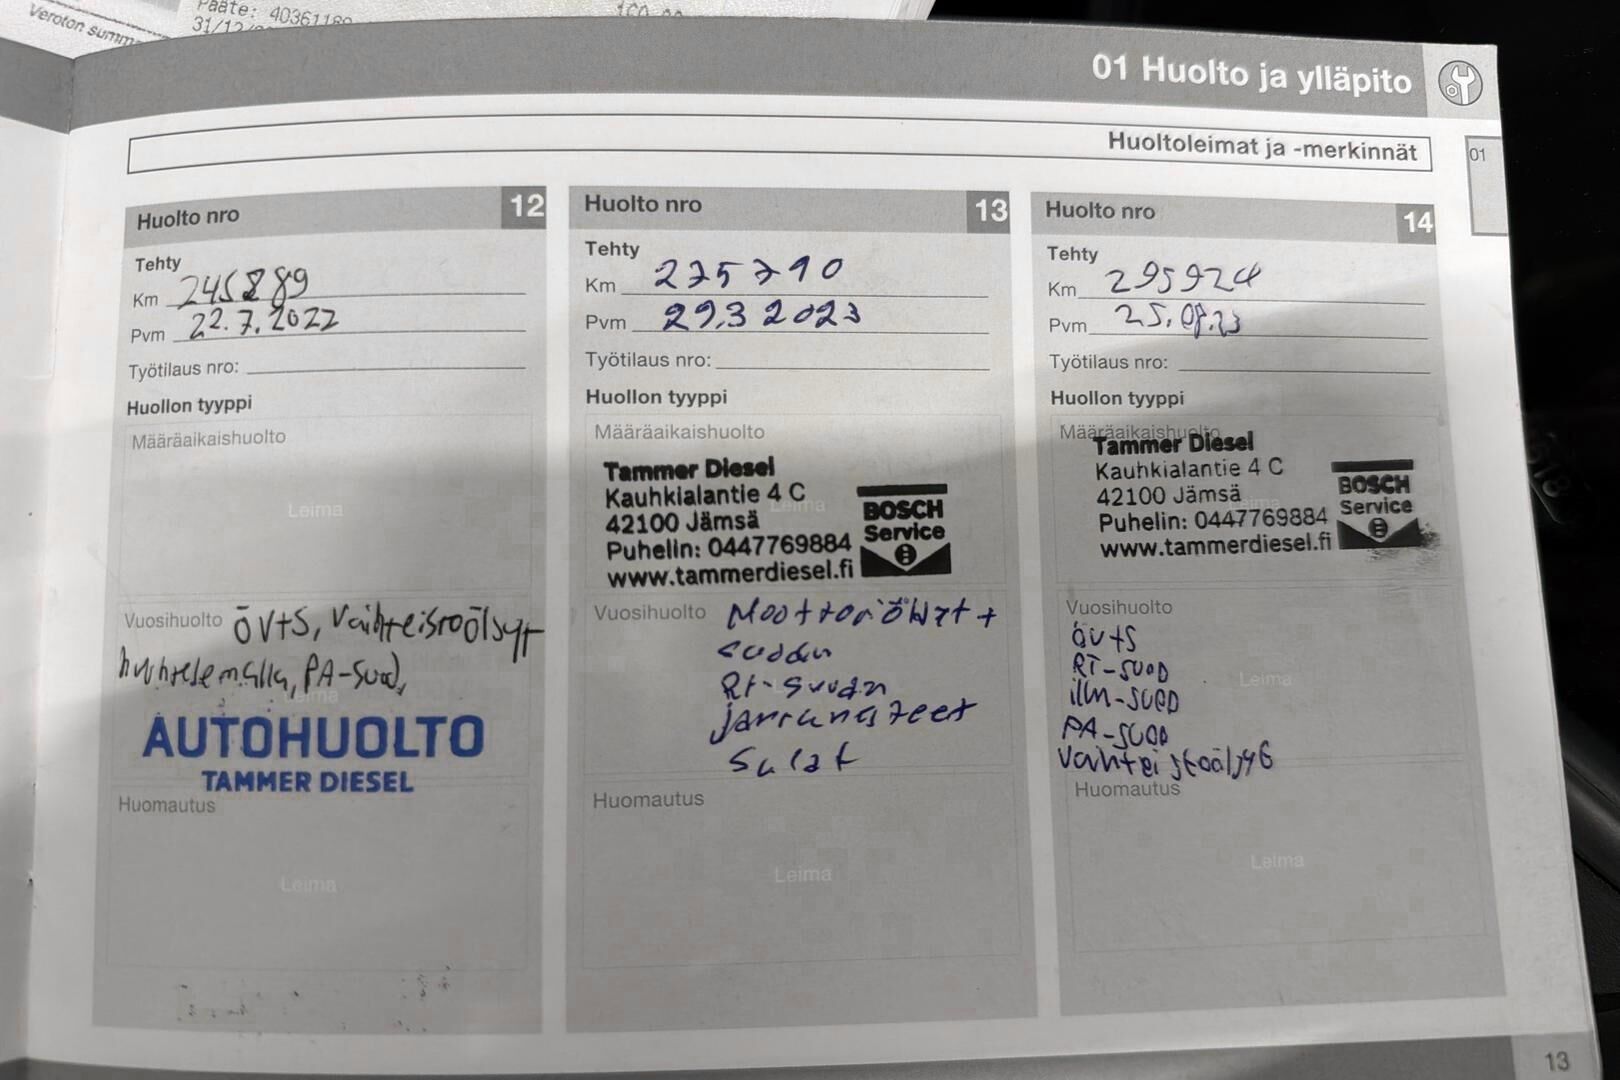 Veroton summa
Pääte: 40361189
31/12/
01 Huolto ja ylläpito
Huoltoleimat ja -merkinnät
01
Huolto nro 12
Tehty
Km 245889
Pvm 22.7.2022
Työtilaus nro:
Huollon tyyppi
Määräaikaishuolto
Leima
Vuosihuolto ÖVtS, Vaihteistoöljyt
huuhtelemalla, PA-suod,
Leima
AUTOHUOLTO
TAMMER DIESEL
Huomautus
Leima
Huolto nro 13
Tehty
Km 275790
Pvm 29.3 2023
Työtilaus nro:
Huollon tyyppi
Määräaikaishuolto
Leima
Tammer Diesel
Kauhkialantie 4 C
42100 Jämsä
Puhelin: 0447769884
www.tammerdiesel.fi
BOSCH
Service
Vuosihuolto Moottoriöljyt +
suodan
Rt-suodan
jarrunesteet
Sulat
Huomautus
Leima
Huolto nro 14
Tehty
Km 295924
Pvm 25.08.23
Työtilaus nro:
Huollon tyyppi
Määräaikaishuolto
Leima
Tammer Diesel
Kauhkialantie 4 C
42100 Jämsä
Puhelin: 0447769884
www.tammerdiesel.fi
BOSCH
Service
Vuosihuolto
ÖVtS
RT-SUOD
ilm-SUOD
PA-SUOD
Vaihteistoöljyt
Leima
Huomautus
Leima
13